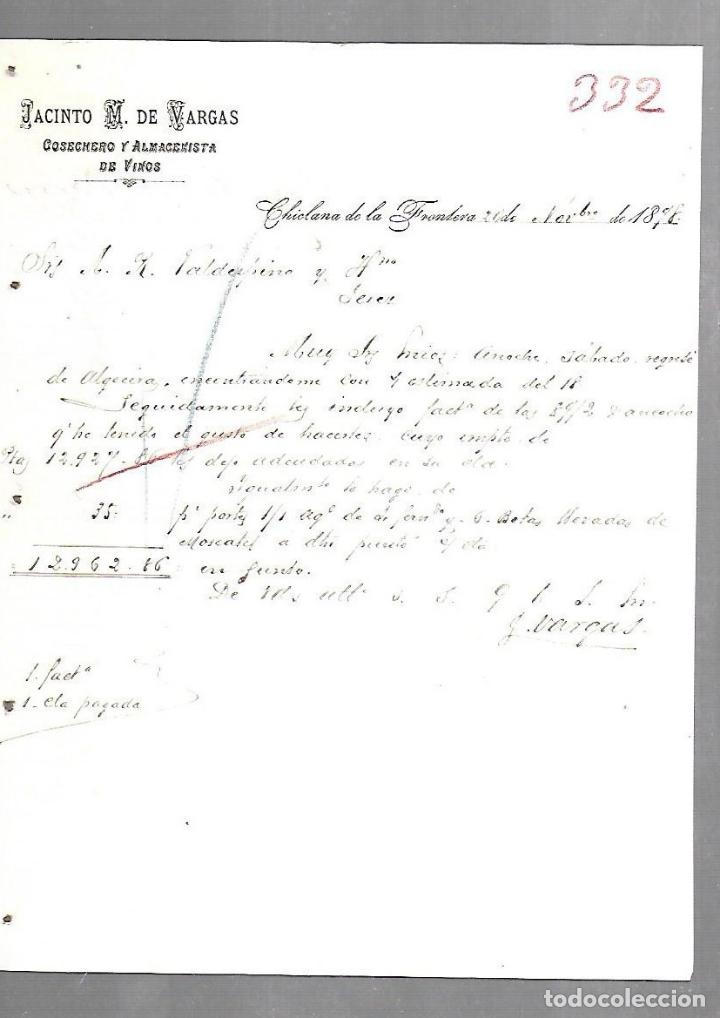 332
JACINTO M. DE VARGAS
COSECHERO Y ALMACENISTA
DE VINOS
Chiclana de la Frontera 21 de Novbre de 18
Srs A. R. Valdespino y Hno
Jerez
Muy Srs mios: anoche, sábado, regresé
de Algeciras, encontrándome con estimada del 18
Seguidamente les incluyo factª de las 29/2
q' he tenido el gusto de hacerles cuyo impte de
Ptas 12.927-86 les dejo adeudados en su cta.
Igualmte lo hago de
" 35- pr portes 1/1 de y 6 Botas llevadas de
Moscatel a dho puerto
12.962-86 en junto.
De Vds s. s. q b s m.
J. Vargas.
1. factª
1. cta pagada
todocoleccion
todocoleccion.net